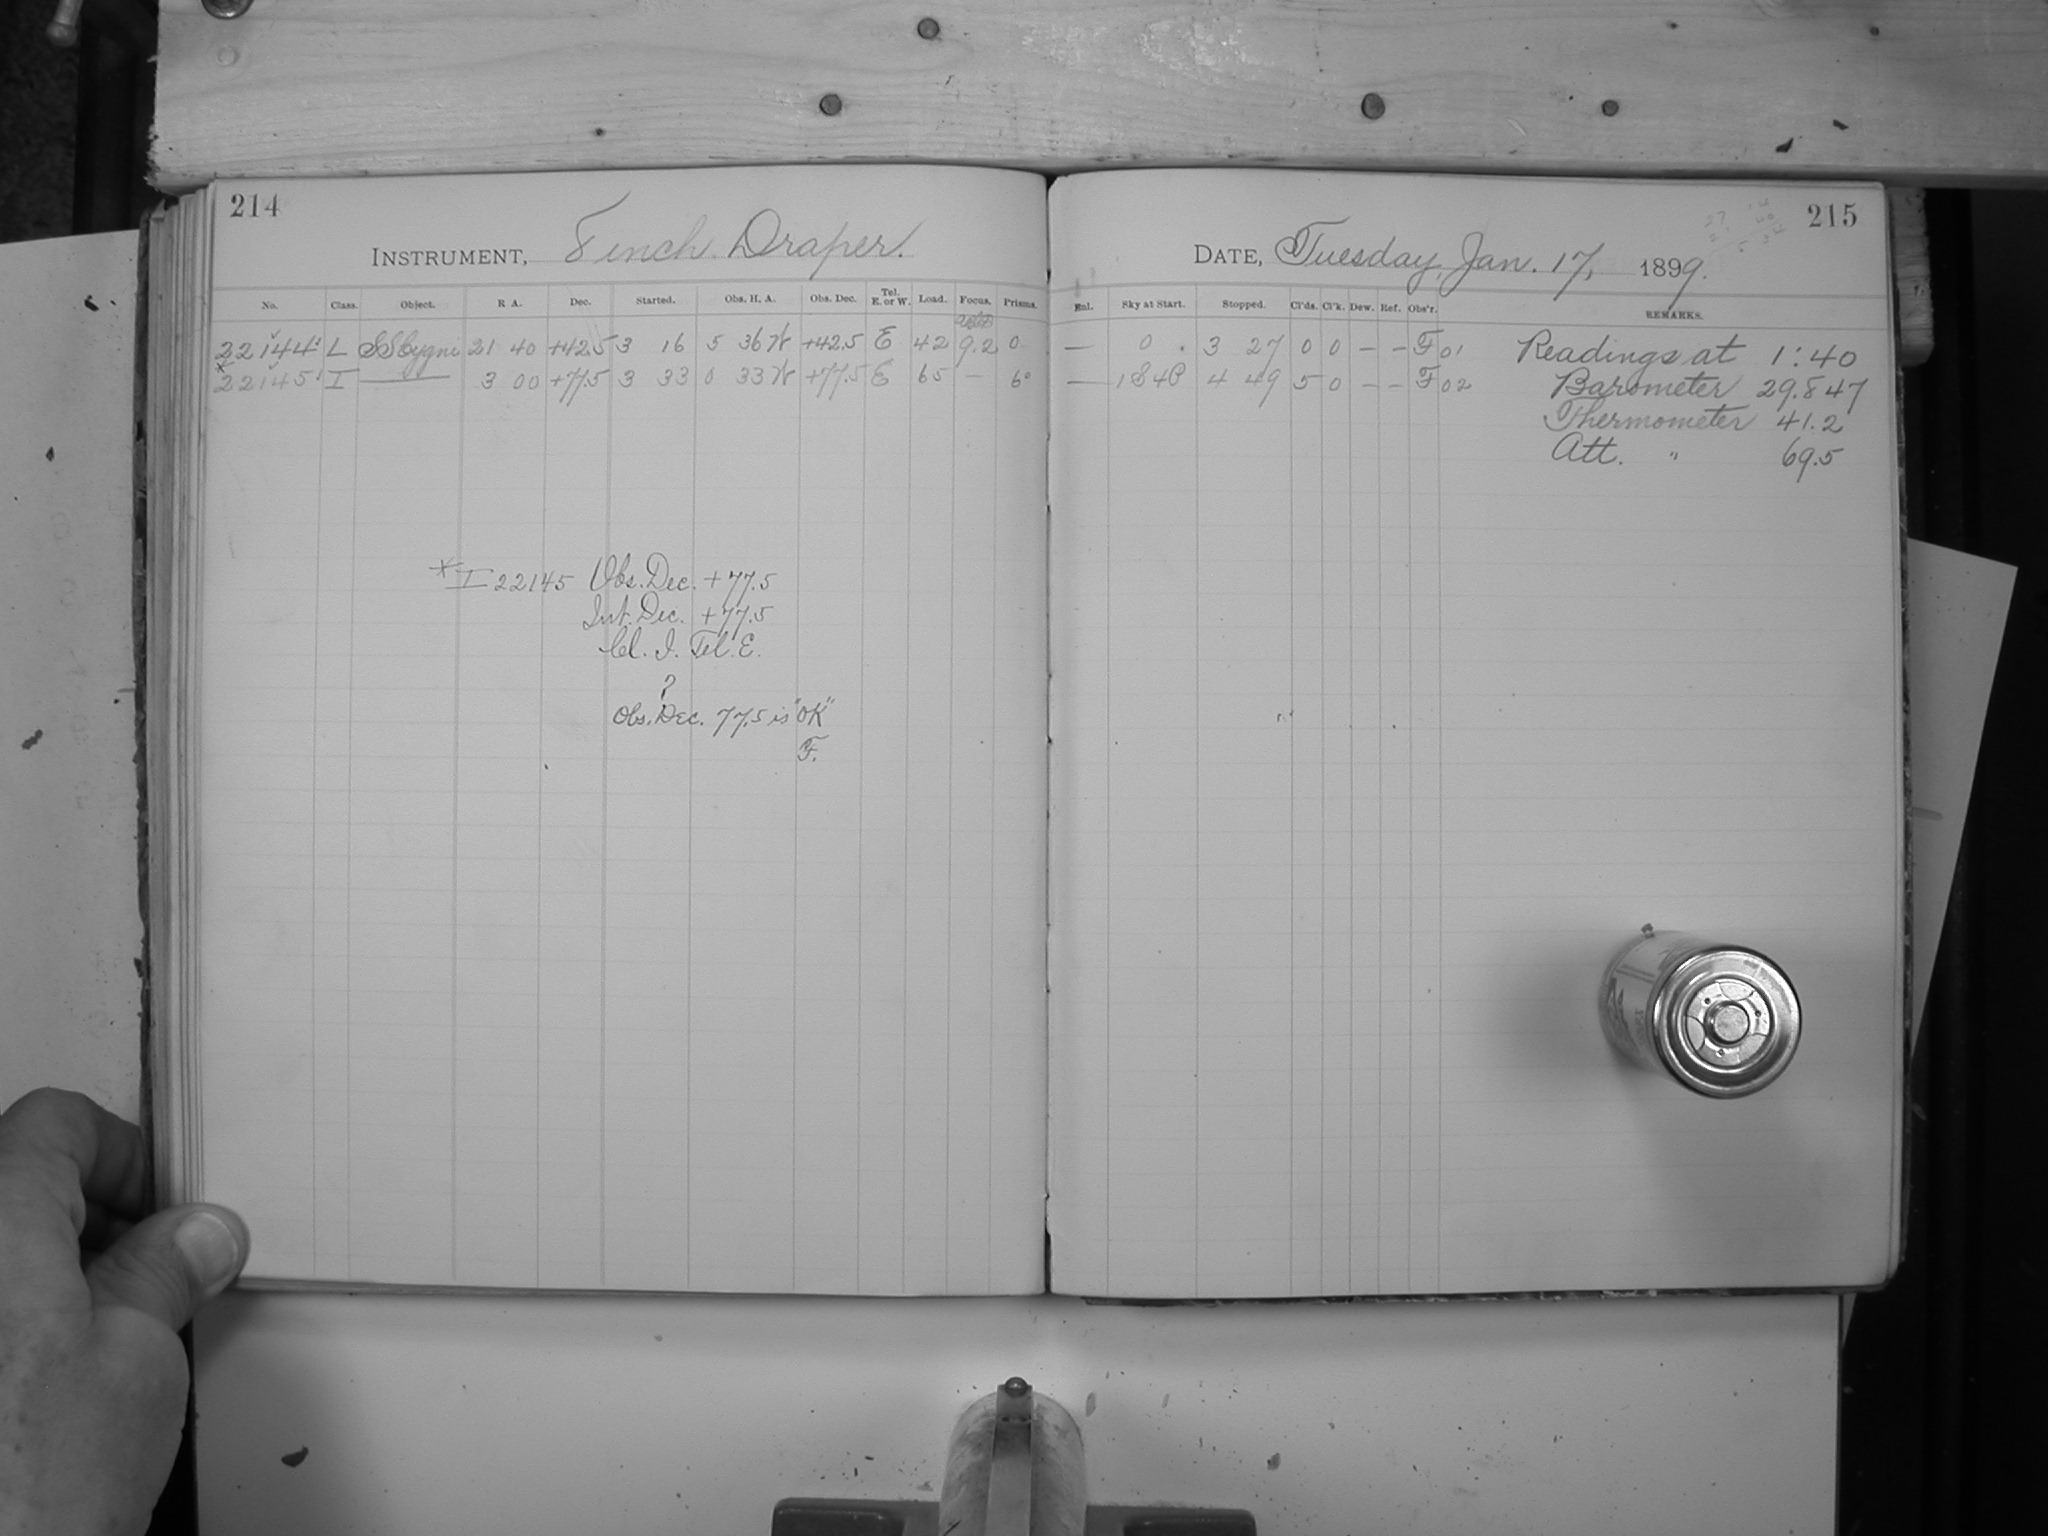 214
INSTRUMENT, 8 inch Draper.
No. Class. Object. R A. Dec. Started. Obs. H. A. Obs. Dec. Tel. E. or W. Load. Focus. Prisms.
22144 L SS Cygni 21 40 +42.5 3 16 5 36 W +42.5 E 42 9.2 0
*22145 I — 3 00 +77.5 3 33 0 33 W +77.5 E 65 – 6°
* I 22145 Obs. Dec. +77.5
Int. Dec. +77.5
Cl. I. Tel. E.
?
Obs. Dec. 77.5 is "OK"
F.
215
DATE, Tuesday, Jan. 17, 1899.
Enl. Sky at Start. Stopped. Cl'ds. Cl'k. Dew. Ref. Obs'r. REMARKS.
— 0 3 27 0 0 – – F 01 Readings at 1:40
— 4 49 5 0 – – F 02 Barometer 29.847
Thermometer 41.2
Att. " 69.5